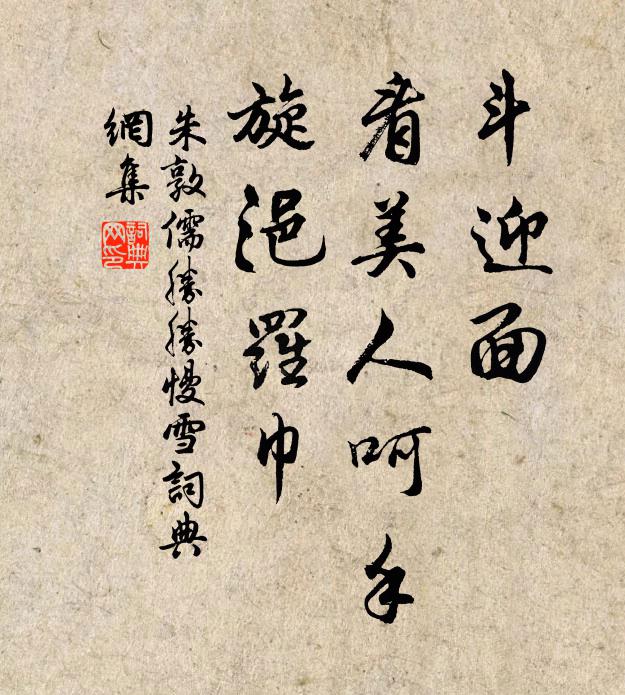 斗迎面
看美人呵手
旋浥羅巾
朱敦儒勝勝慢雪詞典
網集
詞典
网印